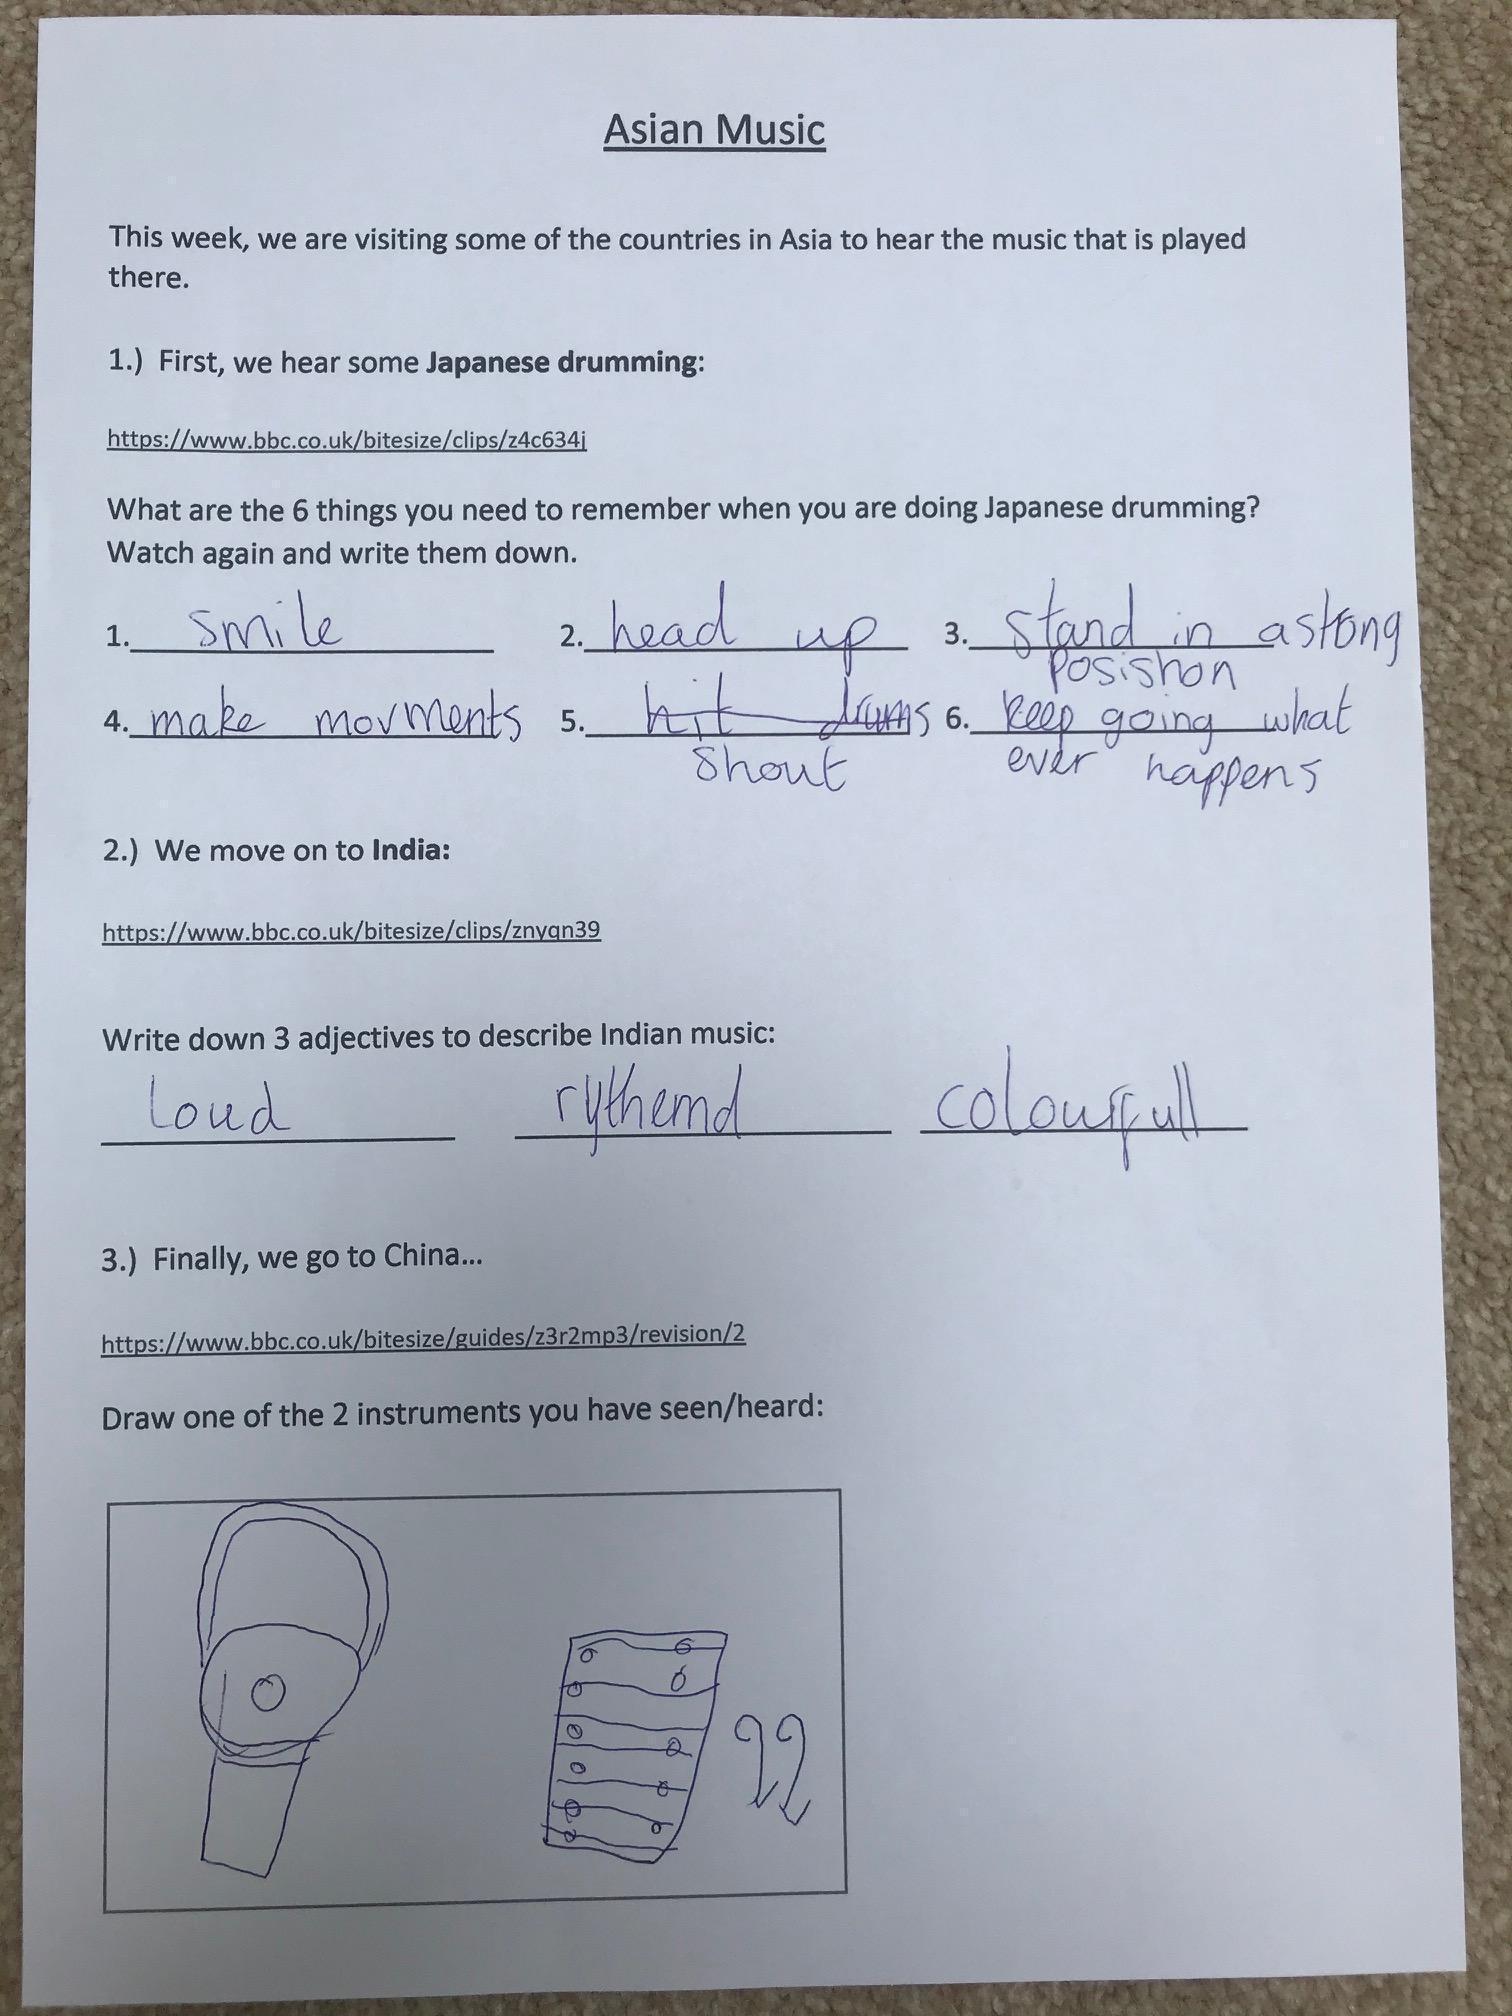 Asian Music
This week, we are visiting some of the countries in Asia to hear the music that is played
there.
1.) First, we hear some Japanese drumming:
https://www.bbc.co.uk/bitesize/clips/z4c634j
What are the 6 things you need to remember when you are doing Japanese drumming?
Watch again and write them down.
1. smile 2. head up 3. stand in a strong
posishon
4. make movments 5. hit drums 6. keep going what
shout ever happens
2.) We move on to India:
https://www.bbc.co.uk/bitesize/clips/znyqn39
Write down 3 adjectives to describe Indian music:
loud rythemd colourfull
3.) Finally, we go to China...
https://www.bbc.co.uk/bitesize/guides/z3r2mp3/revision/2
Draw one of the 2 instruments you have seen/heard: